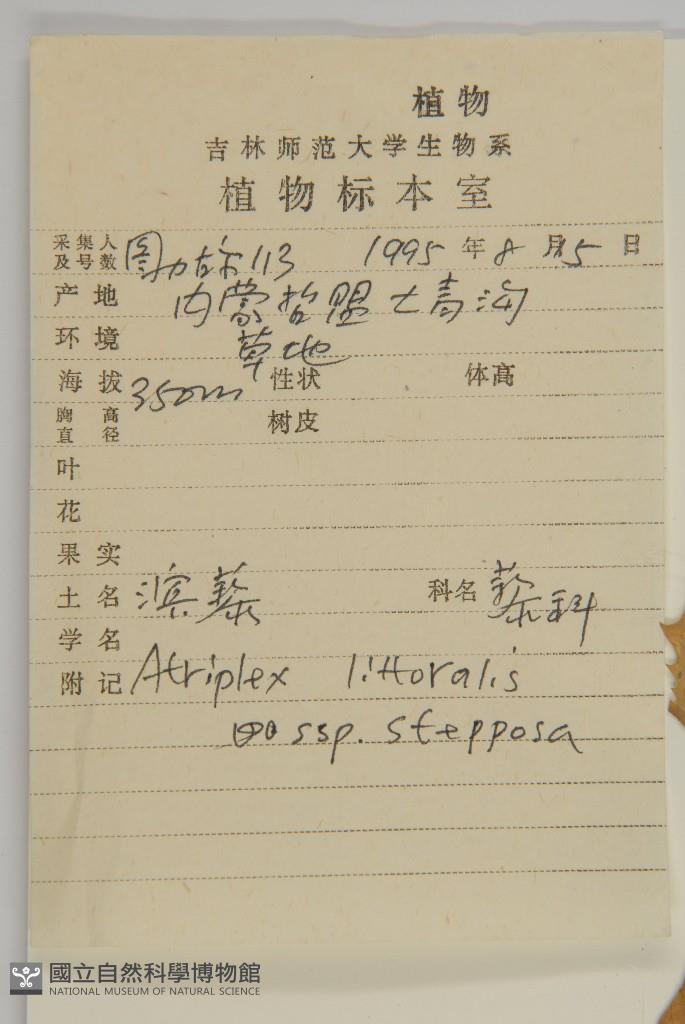 植物
吉林师范大学生物系
植物标本室
采集人及号数 图力古尔113 1995年8月15日
产地 内蒙哲盟大青沟
环境 草地
海拔 350m 性状 体高
胸高直径 树皮
叶
花
果实
土名 滨藜 科名 藜科
学名
附记 Atriplex littoralis
ssp. stepposa
國立自然科學博物館
NATIONAL MUSEUM OF NATURAL SCIENCE